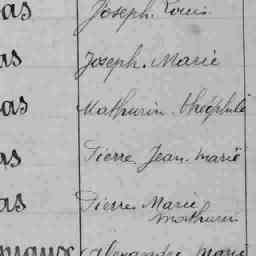 as Joseph Louis
as Joseph. Marie
as Mathurin théophile
as Pierre Jean. marie
as Pierre Marie
mathurin
Alexandre marie